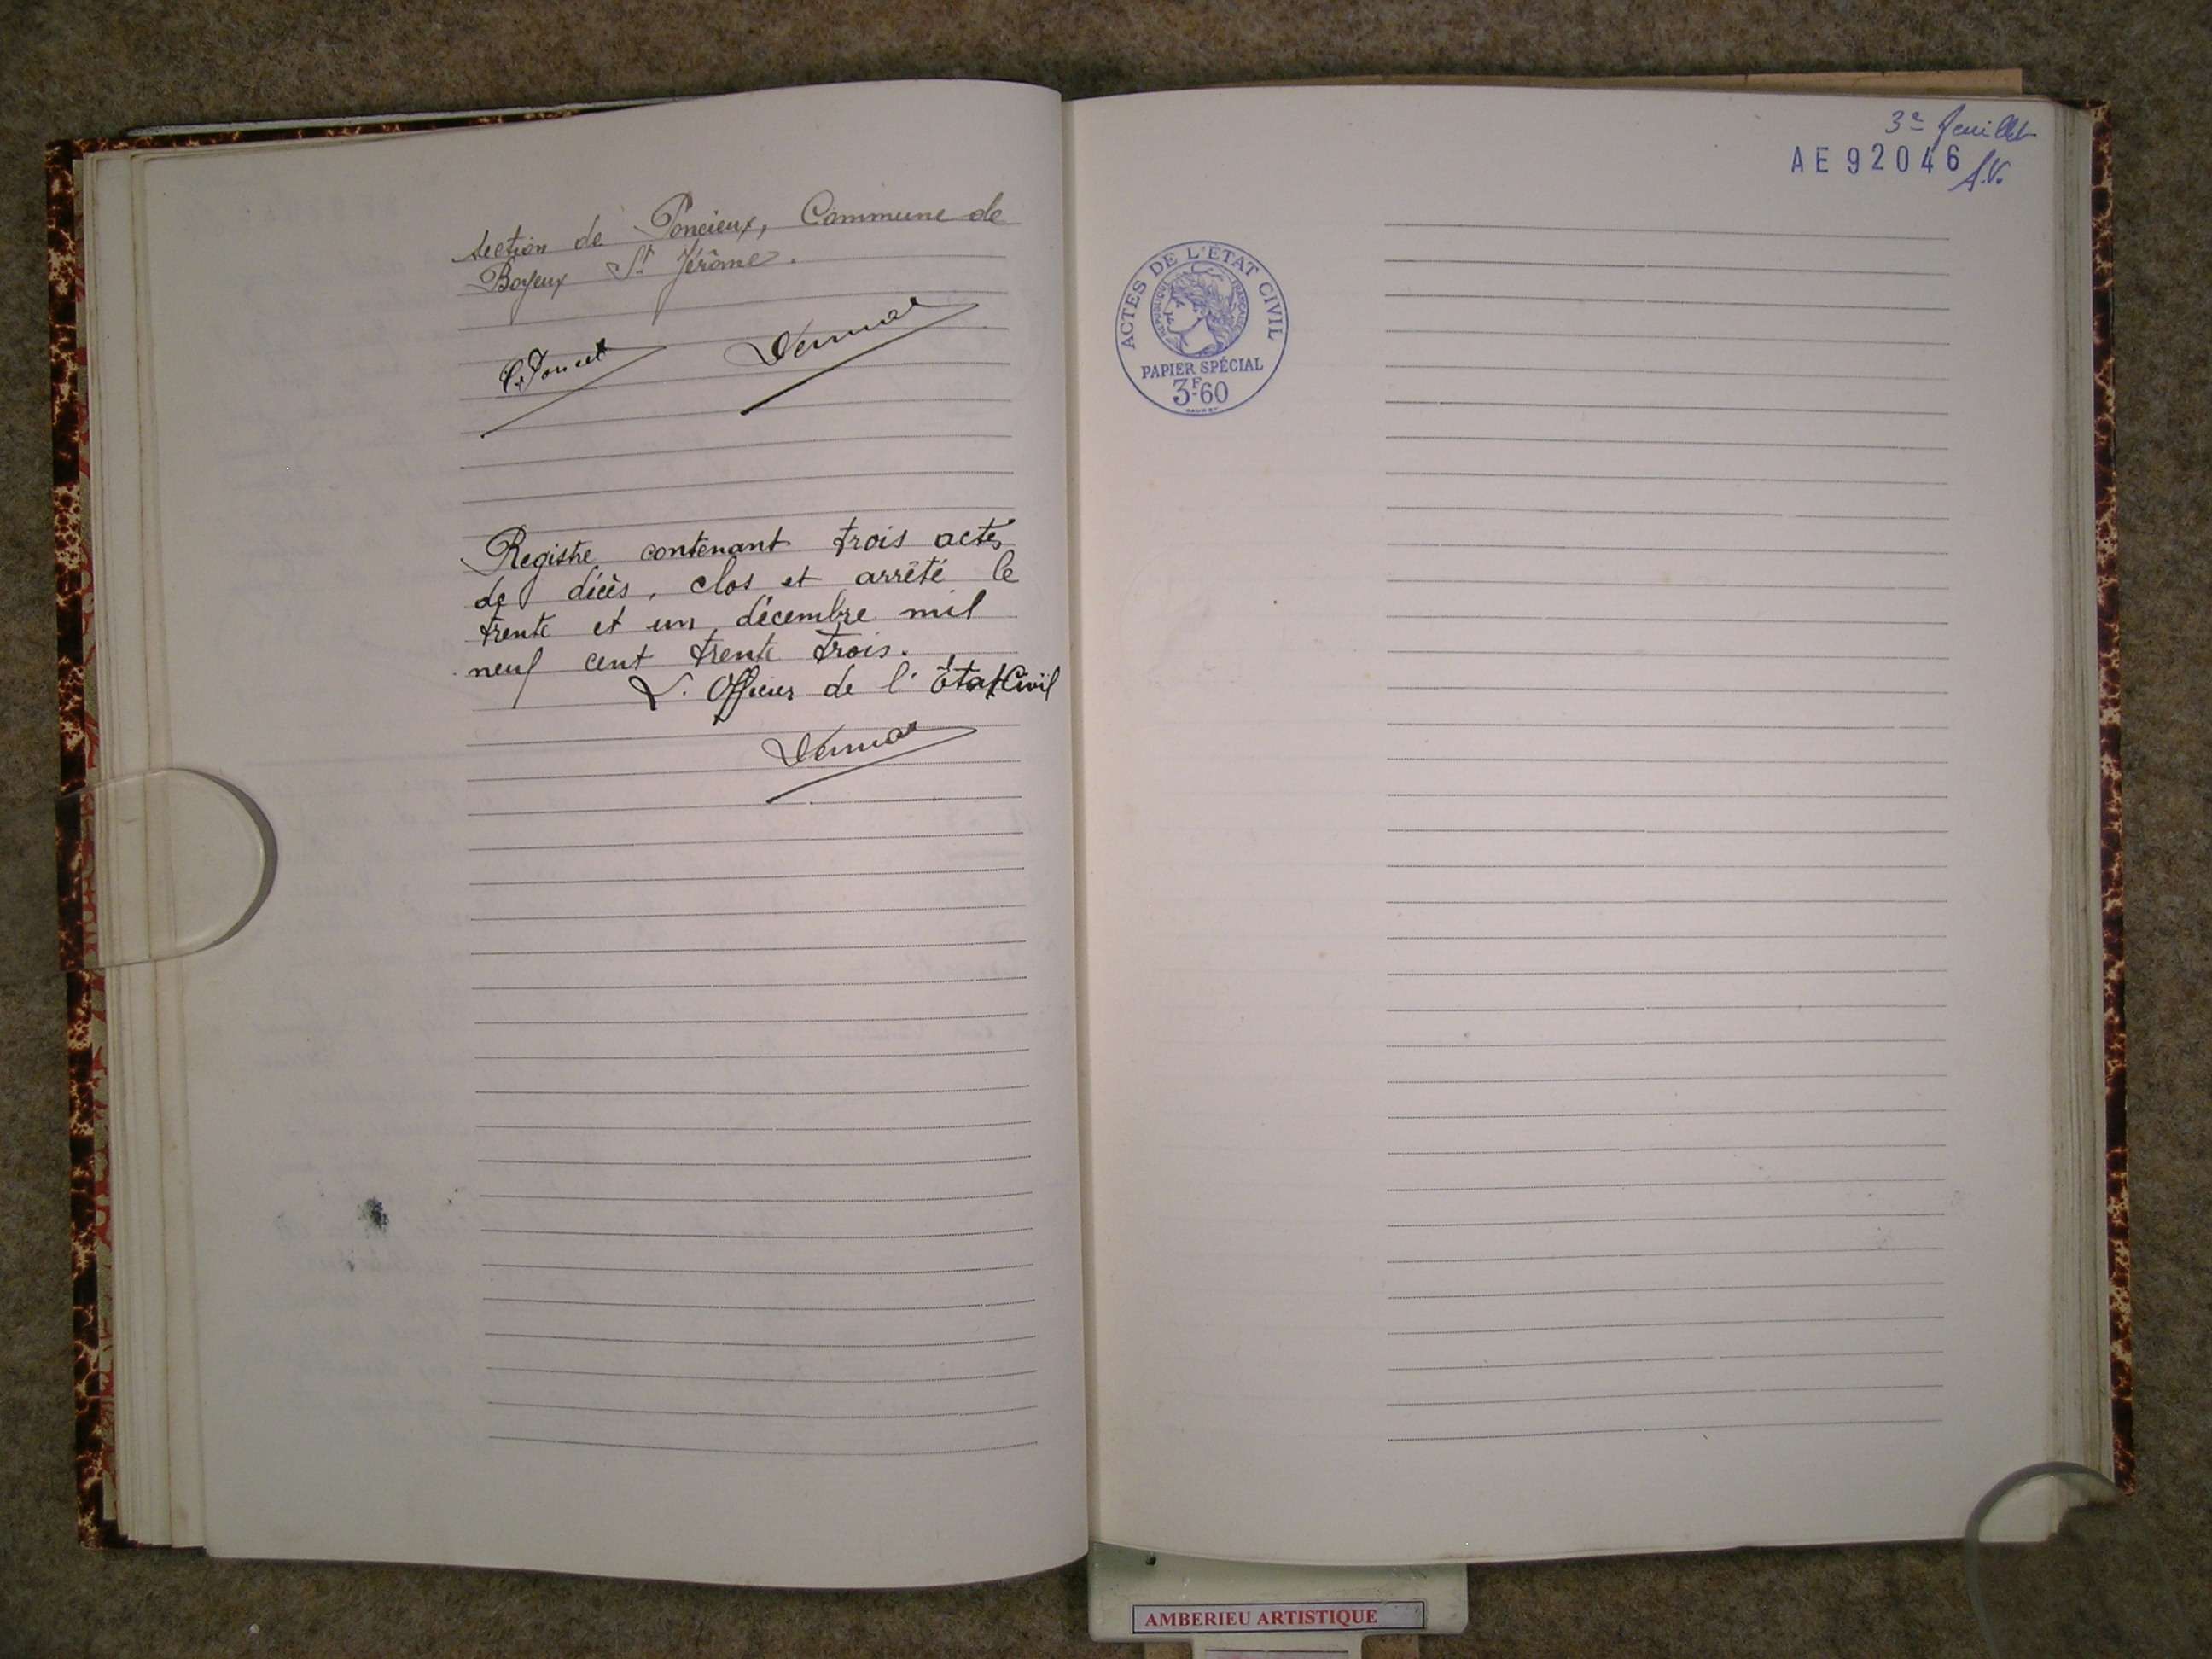 section de Poncieux, Commune de
Boyeux St Jérôme.
C. Poncet
Registre contenant trois actes
de décès, clos et arrêté le
trente et un décembre mil
neuf cent trente trois.
L'Officier de l'État Civil
3e feuillet
AE 92046
ACTES DE L'ÉTAT CIVIL
RÉPUBLIQUE FRANÇAISE
PAPIER SPÉCIAL
3F60
AMBERIEU ARTISTIQUE